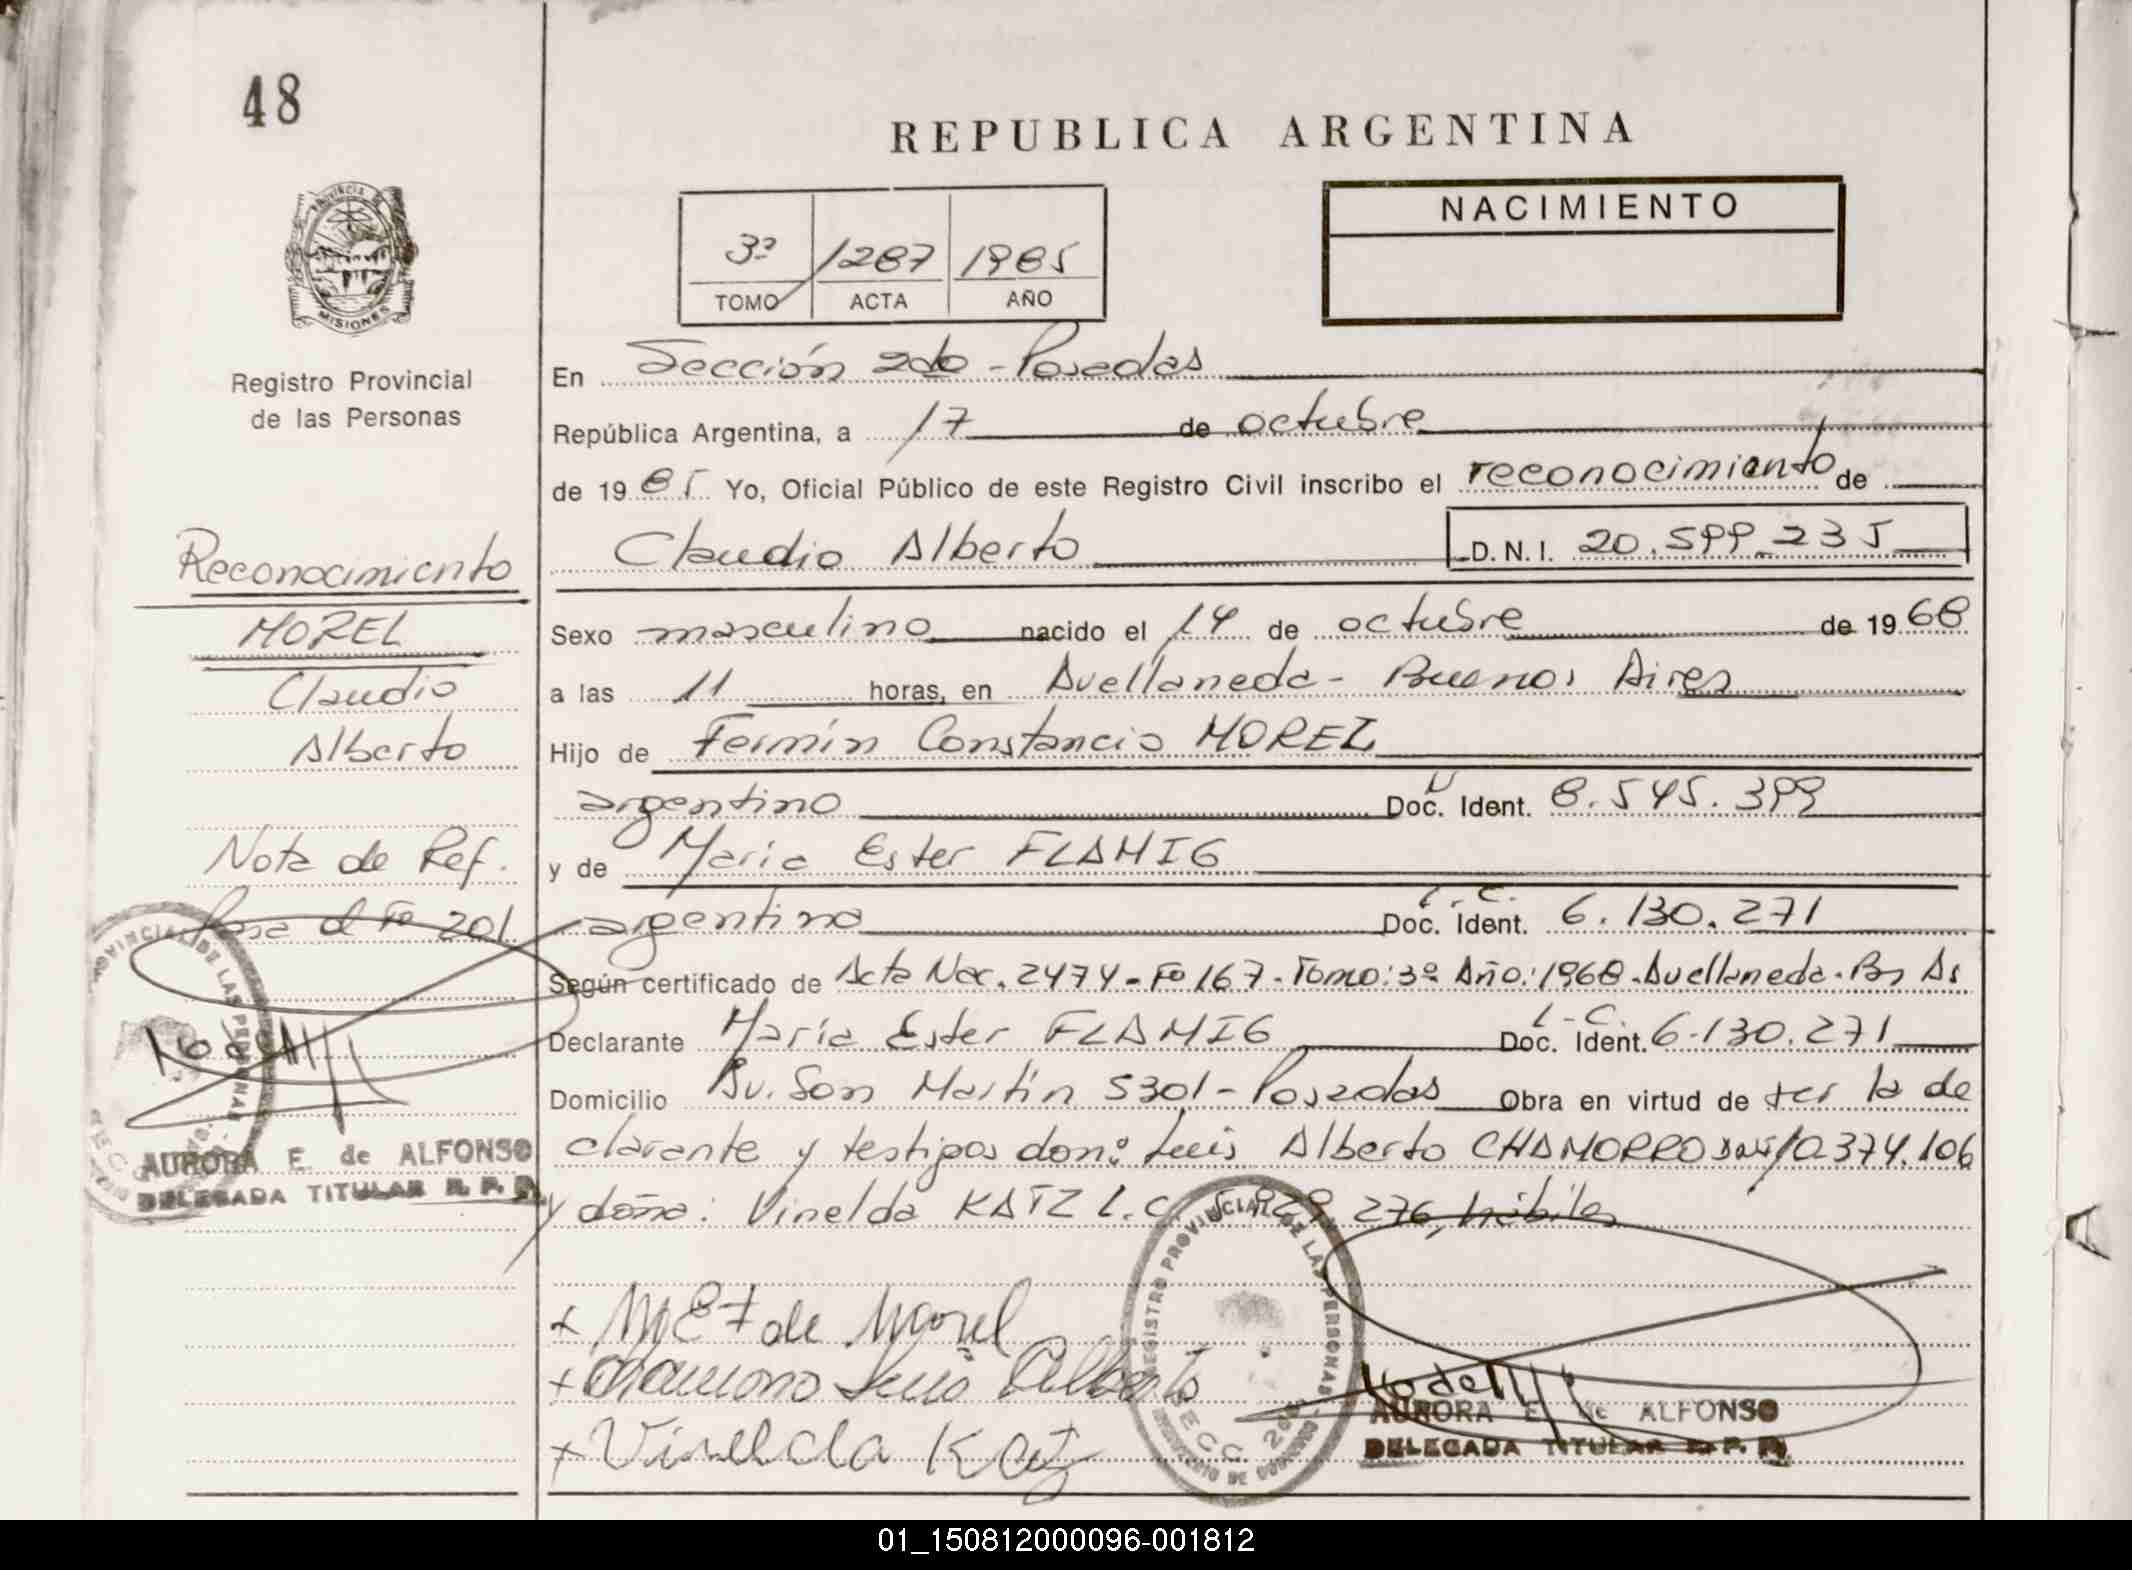 48
REPUBLICA ARGENTINA
PROVINCIA DE
MISIONES
3ª 1287 1985
TOMO ACTA AÑO
NACIMIENTO
Registro Provincial
de las Personas
En Sección 2do - Posadas
República Argentina, a 17 de octubre
de 1985 Yo, Oficial Público de este Registro Civil inscribo el reconocimiento de
Claudio Alberto D.N.I. 20.599.235
Reconocimiento
MOREL
Claudio
Alberto
Sexo masculino nacido el 14 de octubre de 1968
a las 11 horas, en Avellaneda - Buenos Aires
Hijo de Fermín Constancio MOREL
argentino Doc. Ident. 8.545.399
y de María Ester FLAMIG
argentina L.C. Doc. Ident. 6.130.271
Nota de Ref.
Pasa al Fº 201
Según certificado de Acta Nac. 2474 - Fº 167 - Tomo: 3º Año: 1968 - Avellaneda - Bs As
Declarante María Ester FLAMIG L.C. Doc. Ident. 6.130.271
Domicilio Av. San Martín 5301 - Posadas Obra en virtud de ser la de
clarante y testigos don: Luis Alberto CHAMORRO 10.374.106
y doña: Vinelda KATZ L.C. 276, hábiles
AURORA E. de ALFONSO
DELEGADA TITULAR R. P. P.
+ M E F de Morel
+ Chamorro Luis Alberto
+ Vinelda Katz
REGISTRO PROVINCIAL DE LAS PERSONAS
SECC. 2da
AURORA E. de ALFONSO
DELEGADA TITULAR R. P. P.
01_150812000096-001812